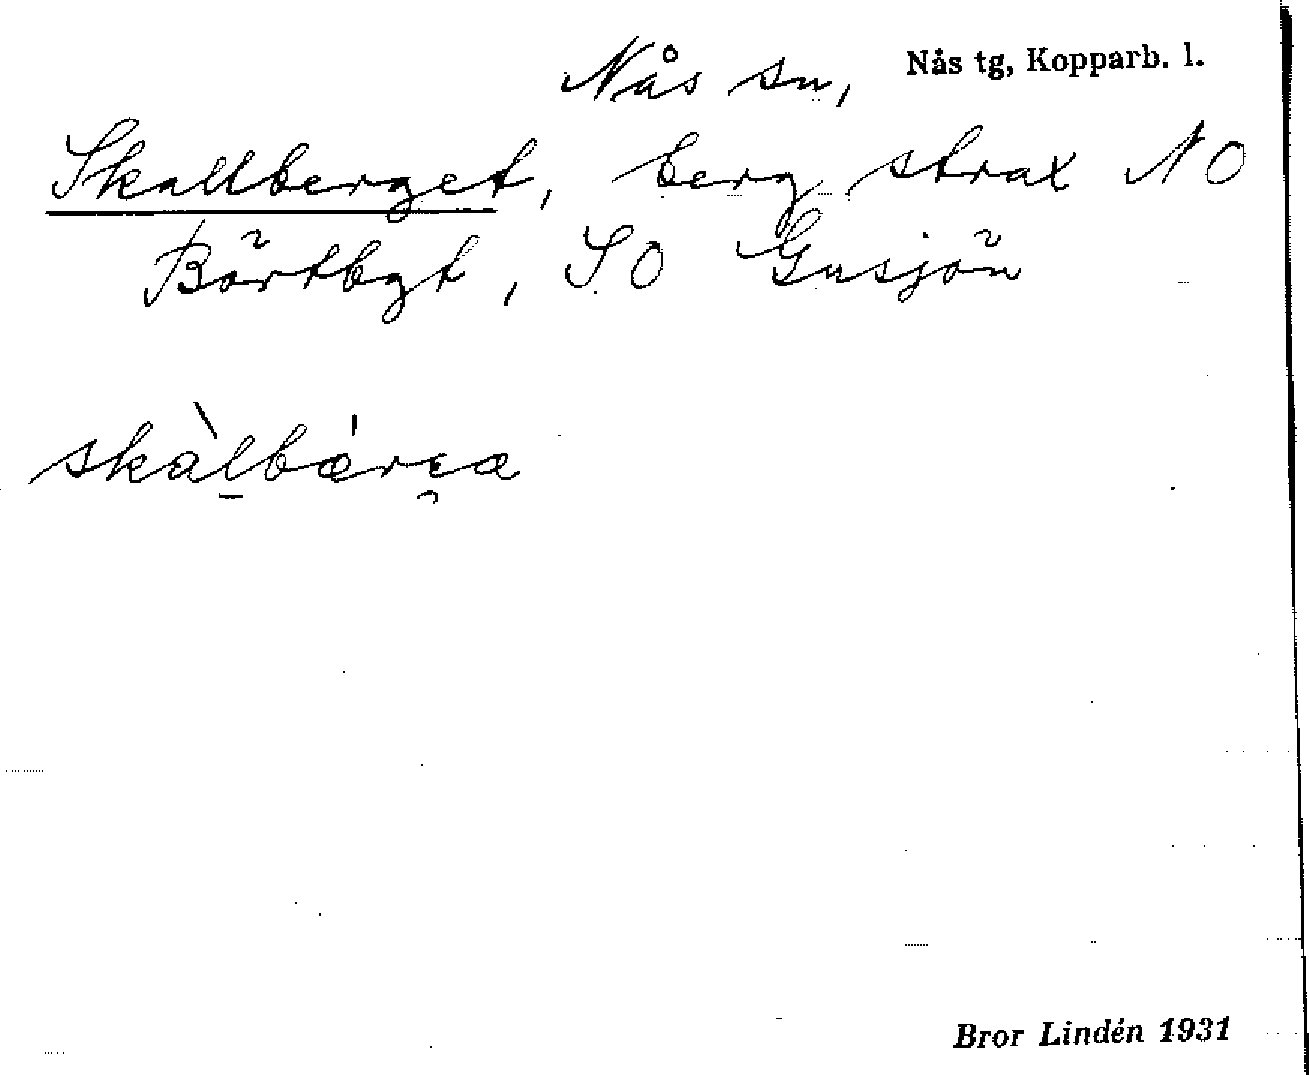 Nås sn, Nås tg, Kopparb. l.
Skallberget, berg strax NO
Börtbgt, SO Gusjön
skàlbárea
Bror Lindén 1931